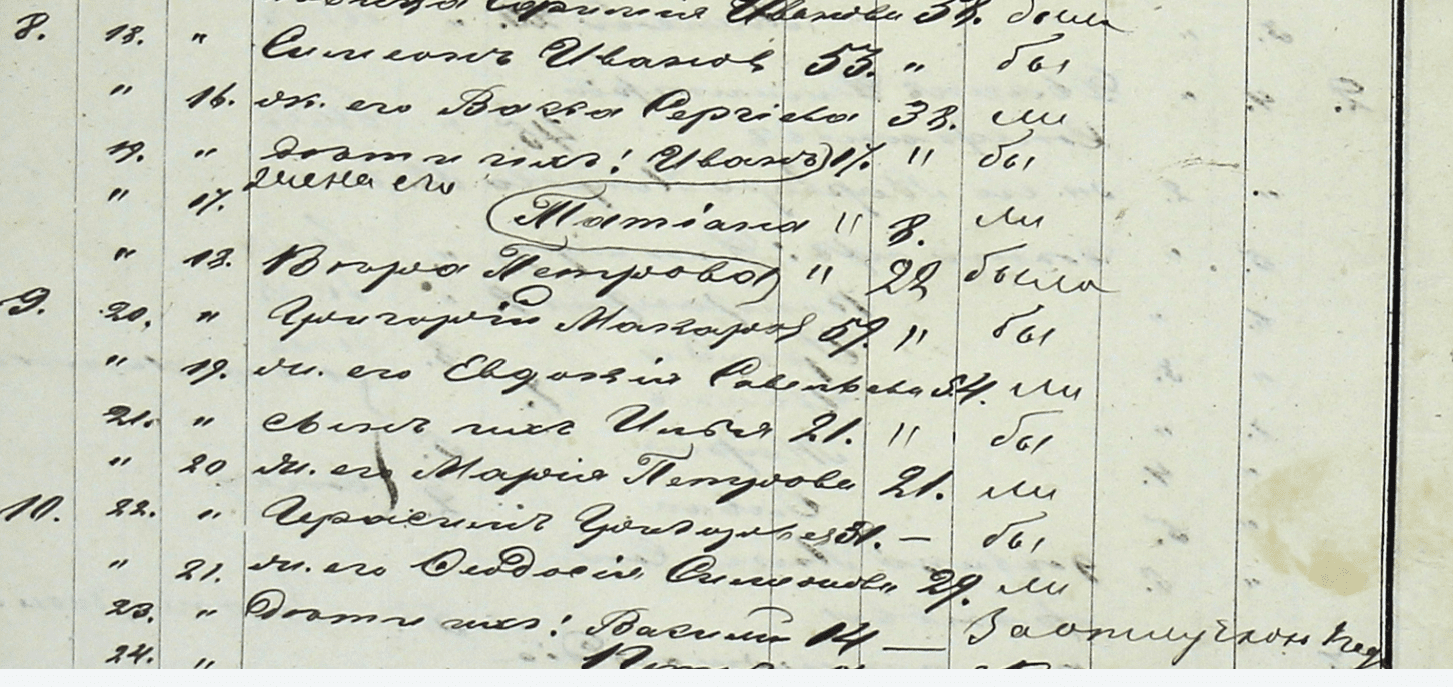 Иванова 58. была
8. 18. " Симеонъ Иванов 53. " бы
" 16. ж. его Васса Сергіева 38. ли
19. " дѣти ихъ: Иванъ 17. " бы
" 17. жена его Татіана " 8. ли
" 18. Вѣра Петрова " 22 была
9. 20. " Григорій Макаров 59. " бы
" 19. ж. его Евдокія Савельева 54. ли
21. " сынъ ихъ Илья 21. " бы
" 20 ж. его Марія Петрова 21. ли
10. 22. " Герасимъ Григорьев 31. — бы
" 21. ж. его Ѳеодосія Симеонова 29. ли
23. " Дѣти ихъ: Василій 14 —
24. "